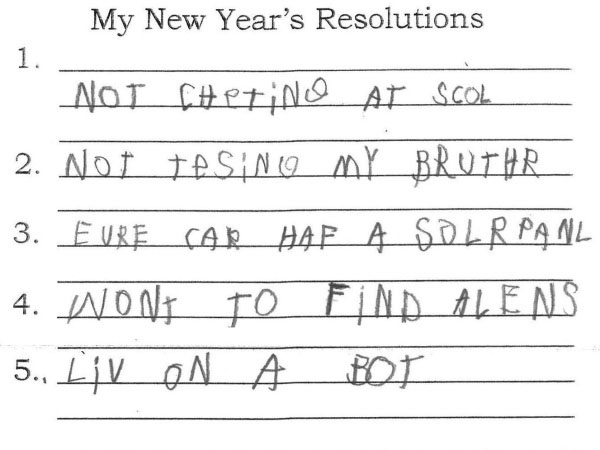 My New Year's Resolutions
1. NOT CHETiNG AT SCOL
2. NOT TESiNG MY BRUTHR
3. EURE CAR HAF A SOLRPANL
4. WONT TO FiND ALENS
5., LiV ON A BOT